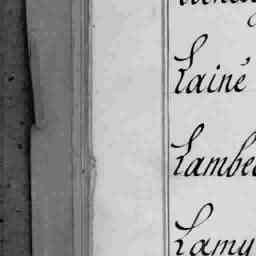 Lainé
Lambe
Lamy